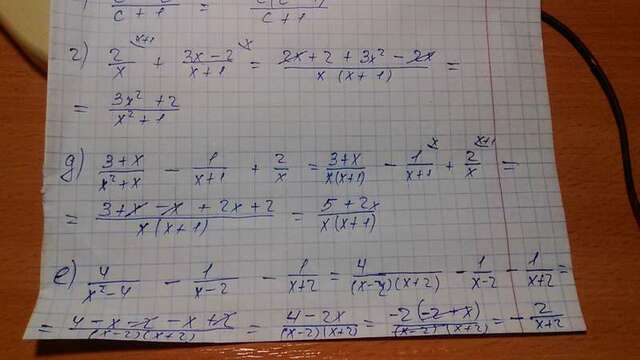 c + 1 = c + 1
г) 2/x (x+1) + 3x - 2/x + 1 (x) = 2x + 2 + 3x² - 2x/x (x + 1) =
= 3x² + 2/x² + 1
д) 3 + x/x² + x - 1/x + 1 + 2/x = 3 + x/x(x+1) - 1/x + 1 (x) + 2/x (x+1) =
= 3 + x - x + 2x + 2/x(x + 1) = 5 + 2x/x(x+1)
е) 4/x² - 4 - 1/x - 2 - 1/x + 2 = 4/(x-2)(x+2) - 1/x - 2 - 1/x + 2 =
= 4 - x - 2 - x + 2/(x-2)(x+2) = 4 - 2x/(x-2)(x+2) = -2(-2 + x)/(x-2)(x+2) = - 2/x + 2